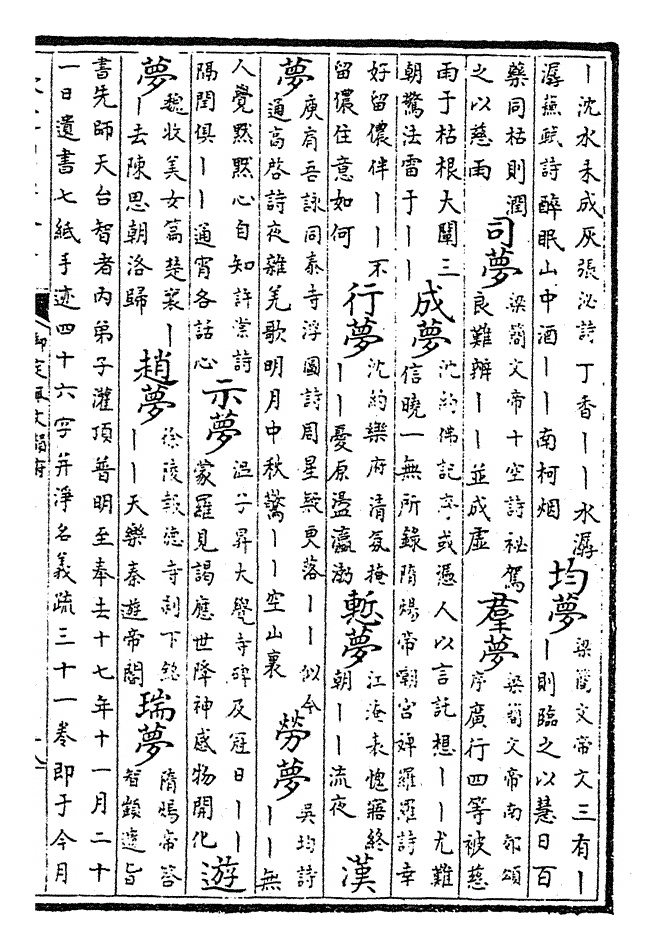 ｜沈水未成灰張泌詩丁香｜｜水潺
潺蕪賦詩醉眠山中酒｜｜南柯烟
均夢
梁簡文帝文三有｜
｜則臨之以慧日百
藥同枯則潤
之以慈雨
司夢
梁簡文帝十空詩祕駕
良難辨｜｜並成虛
羣夢
梁簡文帝南郊頌
序廣行四等被慈
雨于枯根大闡三
朝驚法雷于｜｜
成夢
沈約佛記序或憑人以言託想｜｜尤難
信曉一無所錄隋煬帝朝宮婢羅羅詩幸
好留儂伴｜｜不
留儂住意如何
行夢
沈約樂府清氛掩
｜｜憂原盪瀛渤
慙夢
江淹表愧寤終
朝｜｜流夜
漢
夢
庾肩吾詠同泰寺浮圖詩周星疑更落｜｜似今
通高啓詩夜雜羌歌明月中秋驚｜｜空山裏
勞夢
吳均詩
｜｜無
人覺黙黙心自知許棠詩
隔閏俱｜｜通宵各話心
示夢
溫子昇大覺寺碑及冠日｜｜
蒙羅見謁應世降神感物開化
遊
夢
魏收美女篇楚襄｜
｜去陳思朝洛歸
趙夢
徐陵報德寺刹下銘
｜｜天樂秦遊帝閽
瑞夢
隋煬帝答
智顗遺旨
書先師天台智者内弟子灌頂普明至奉去十七年十一月二十
一日遺書七紙手迹四十六字并淨名義疏三十一卷即于今月